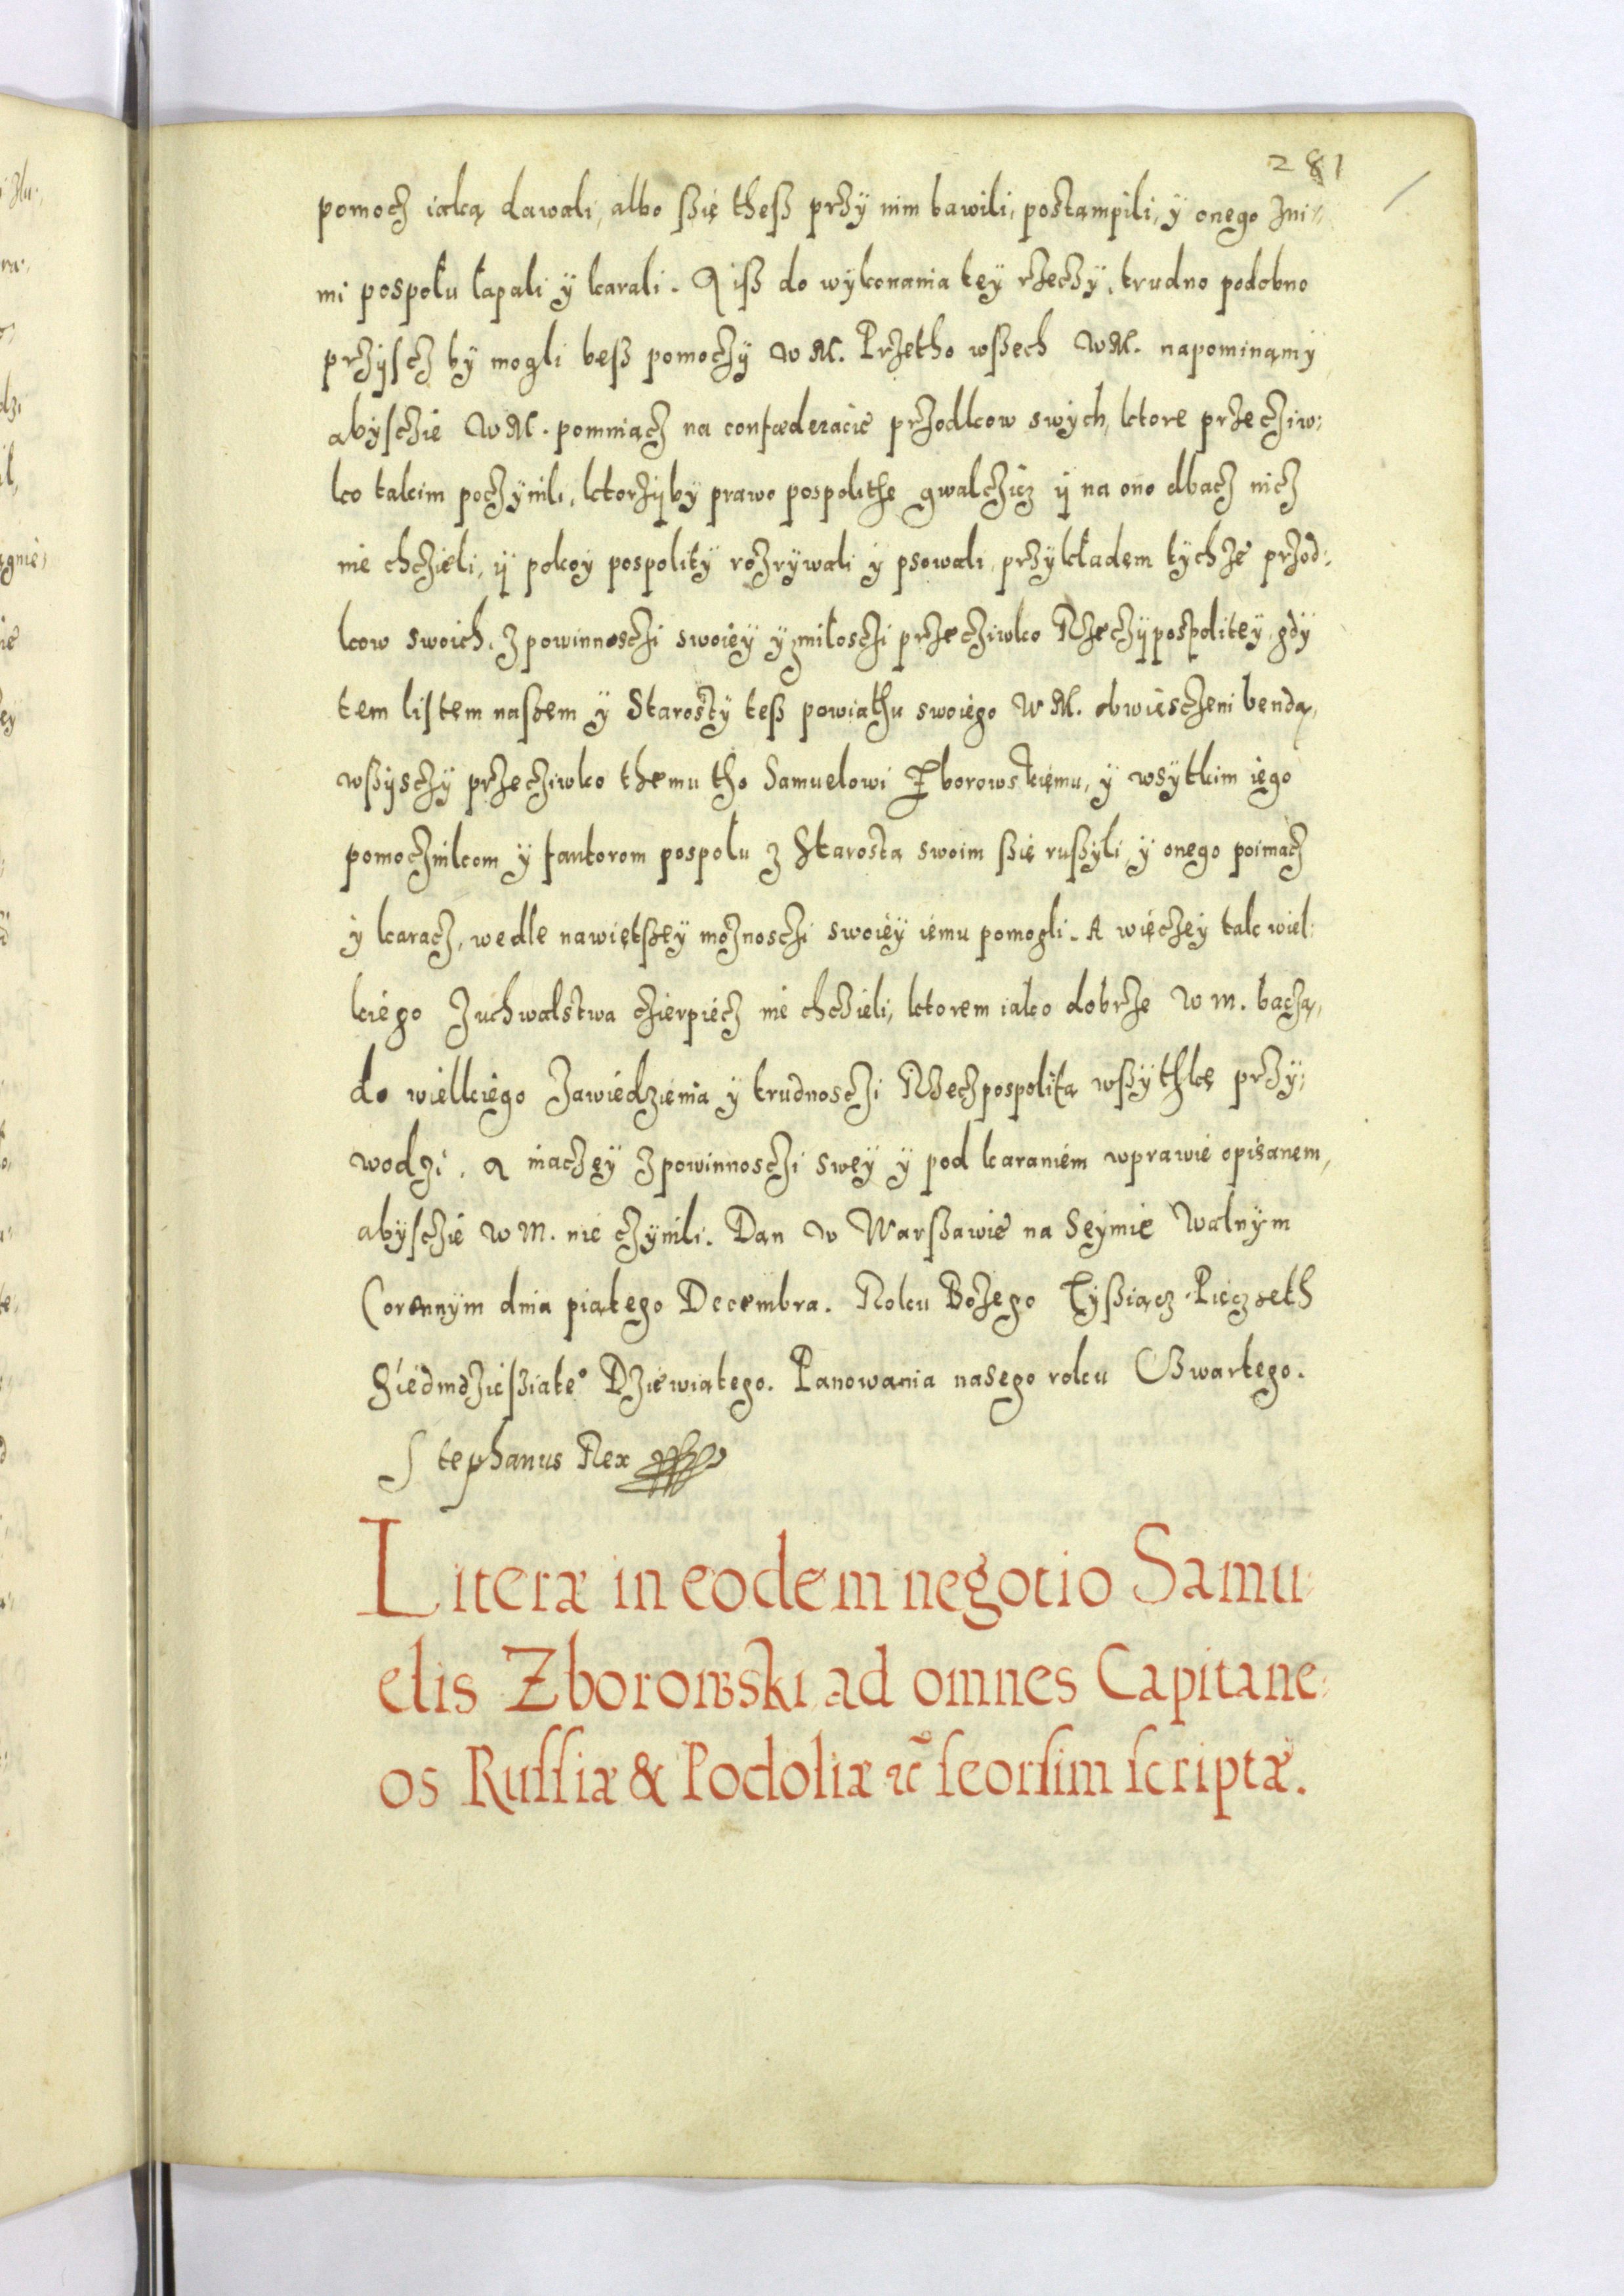 281
pomocz iaką dawali, albo ßię theß przÿ nim bawili, postampili, ÿ onego zni=
mi pospołu łapali ÿ karali. A iß do wykonania tey rzeczÿ, trudno podobno
przÿscz by mogli beß pomoczÿ W M. Przetho wßech WM. napominamÿ
abÿsczie W M. pomniącz na confœderacie przodkow swÿch, ktore przecziw:
ko takim poczÿnili, ktorzÿby prawo pospolithe gwałczicz ÿ na ono dbacz nicz
nie chczieli, ÿ pokoÿ pospolitÿ rozrÿwali ÿ psowali, przÿkładem tÿchze przod:
kow swoich, z powinnosczi swoieÿ ÿ miłosczi przecziwko Rzeczÿpospoliteÿ, gdÿ
tem listem naßem ÿ Starostÿ teß powiathu swoiego W M. obwiesczeni bendą,
wßÿsczÿ przecziwko themu tho Samuelowi Zborowskiemu, ÿ wsÿtkim iego
pomocznikom ÿ fautorom pospołu z Starostą swoim ßię rußÿli, ÿ onego poimacz
ÿ karacz, wedle nawiętßeÿ moznosczi swoieÿ iemu pomogli. A wieczeÿ tak wiel:
kiego zuchwalstwa czierpiecz nie chczieli, ktorem iako dobrze W M. baczą,
do wielkiego zawiedzienia ÿ trudnosczi Rzeczpospolitą wßÿthkę przÿ:
wodzi. A inaczeÿ z powinnosczi sweÿ ÿ pod karaniem wprawie opisanem,
abÿsczie W M. nie czÿnili. Dan w Warßawie na Seÿmie Walnÿm
Coronnÿm dnia piątego Decembra. Roku Bozego Tÿßiącz Pieczseth
Siedmdzießiąte° Dziewiątego. Panowania nasego roku Czwartego.
Stephanus Rex
Literæ in eodem negotio Samu:
elis Zborowski ad omnes Capitane:
os Russiæ & Podoliæ seorsim scriptæ.